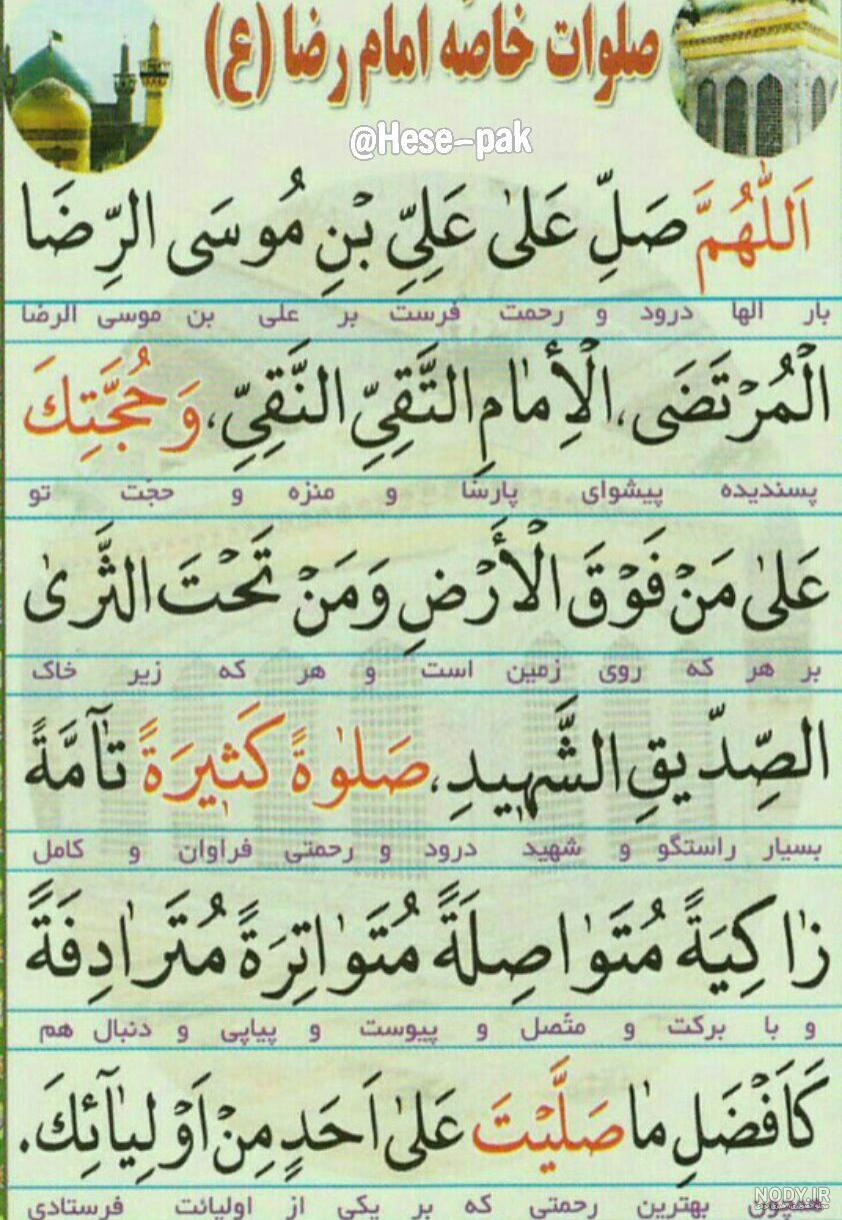 صلوات خاصّه امام رضا (ع)
@Hese-pak
اَللّٰهُمَّ صَلِّ عَلىٰ عَلِيِّ بْنِ مُوسَى الرِّضَا
بار الها درود و رحمت فرست بر علی بن موسی الرضا
الْمُرْتَضَى، الْأِمٰامِ التَّقِيِّ النَّقِيِّ، وَ حُجَّتِكَ
پسندیده پیشوای پارسا و منزه و حجّت تو
عَلىٰ مَنْ فَوْقَ الْأَرْضِ وَ مَنْ تَحْتَ الثَّرىٰ
بر هر که روی زمین است و هر که زیر خاک
الصِّدّيقِ الشَّهيدِ، صَلوٰةً كَثيرَةً تٰآمَّةً
بسیار راستگو و شهید درود و رحمتی فراوان و کامل
زٰاكِيَةً مُتَوٰاصِلَةً مُتَوٰاتِرَةً مُتَرٰادِفَةً
و با برکت و متّصل و پیوست و پیاپی و دنبال هم
كَاَفْضَلِ مٰا صَلَّيْتَ عَلىٰ اَحَدٍ مِنْ اَوْلِيٰآئِكَ.
همچون بهترین رحمتی که بر یکی از اولیائت فرستادی
NODY.IR